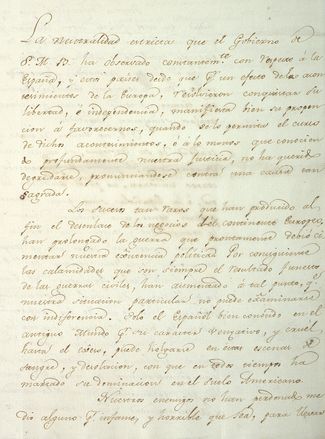 La neutralidad estricta que el Gobierno de
S. M. B. ha observado constantemte. con respecto a la
España, y estos países desde que pr. un efecto de los acon
tecimientos de la Europa, resolvieron conquistar su
libertad, é independencia, manifiesta bien su propen
cion a favorecernos, quando se lo permita el curso
de dichos acontecimientos, ó a lo menos que conocien
do profundamente nuestra justicia, no ha querido
degradarse, pronunciandose contra una causa tan
sagrada.
Los sucesos tan raros que han producido al
fin el desenlace de los negocios del continente Europeo,
han prolongado la guerra que prontamente debió ci
mentar nuestra economia politica. Por consiguiente
las calamidades que son siempre el resultado funesto
de las guerras civiles, han aumentado á tal punto, q.
nuestra situacion particular no puede examinarse
con indiferencia. Solo el Español bien conocido en el
antiguo Mundo pr. su caracter vengativo, y cruel
hasta el exceso, puede holgarse en estas escenas de
sangre, y desolacion, con que en todos tiempos ha
marcado su dominacion en el suelo Americano.
Nuestros enemigos no han perdonado me
dio alguno pr. infame, y horrible que sea, para llevar